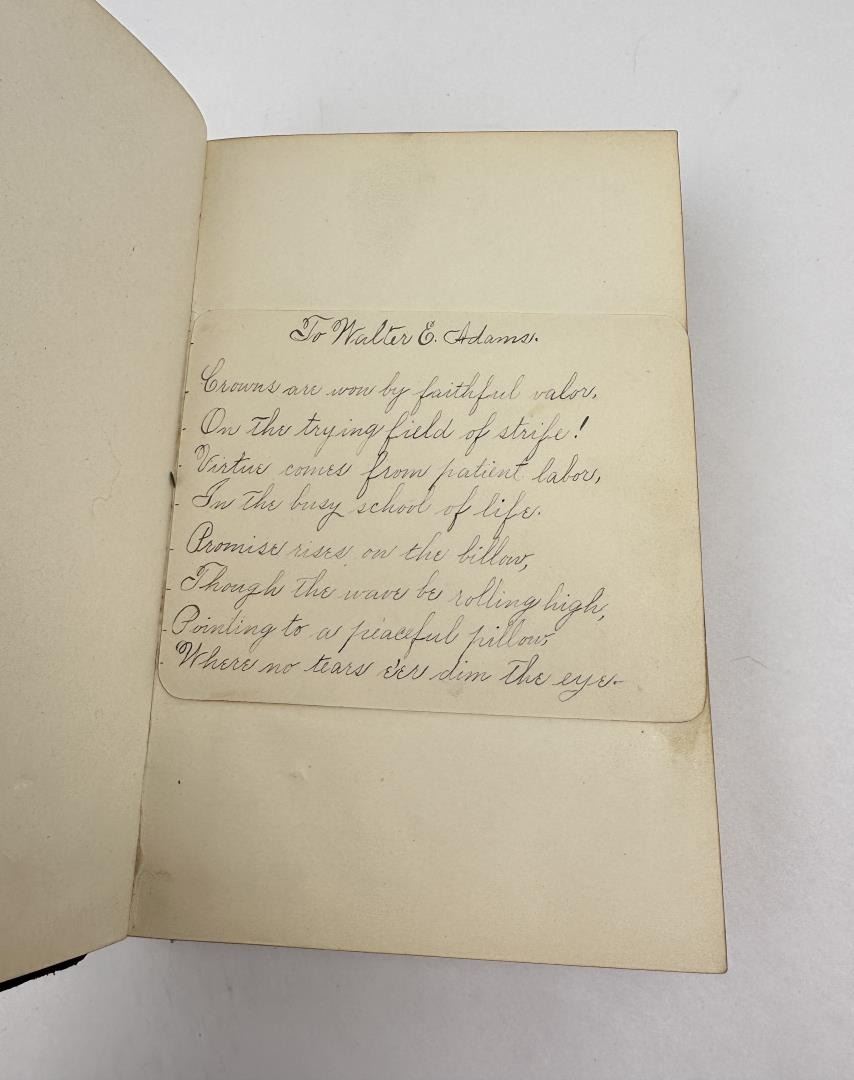 To Walter E. Adams.
Crowns are won by faithful valor,
On the trying field of strife!
Virtue comes from patient labor,
In the busy school of life.
Promise rises on the billow,
Though the wave be rolling high,
Pointing to a peaceful pillow,
Where no tears e'er dim the eye.